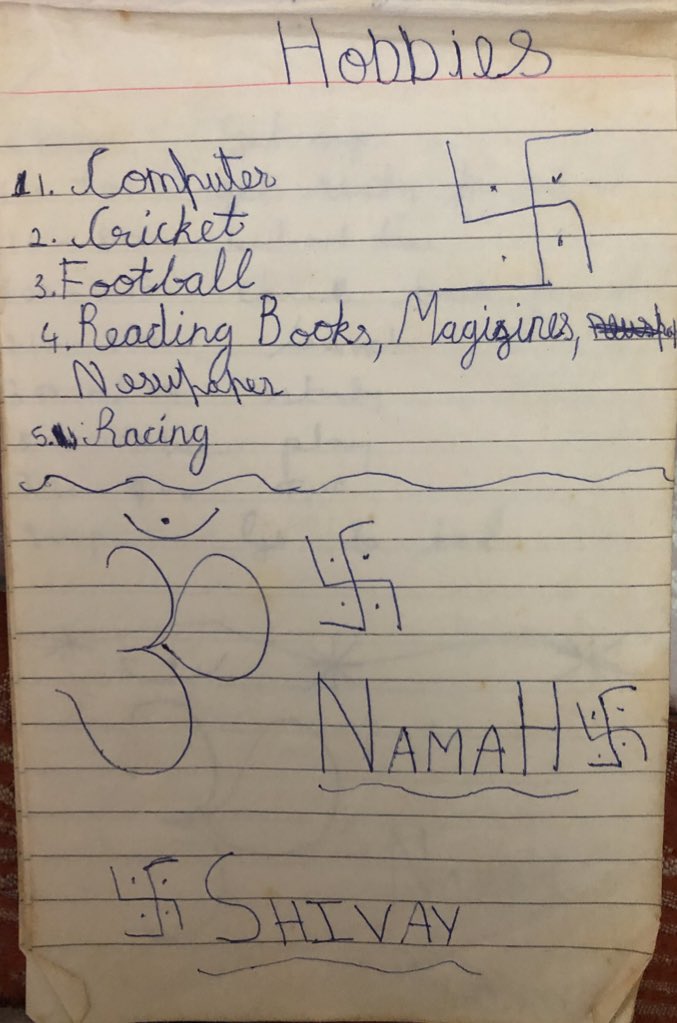 Hobbies
1. Computer
2. Cricket
3. Football
4. Reading Books, Magizines,
Newspaper
5. Racing
ॐ
NAMAH
SHIVAY